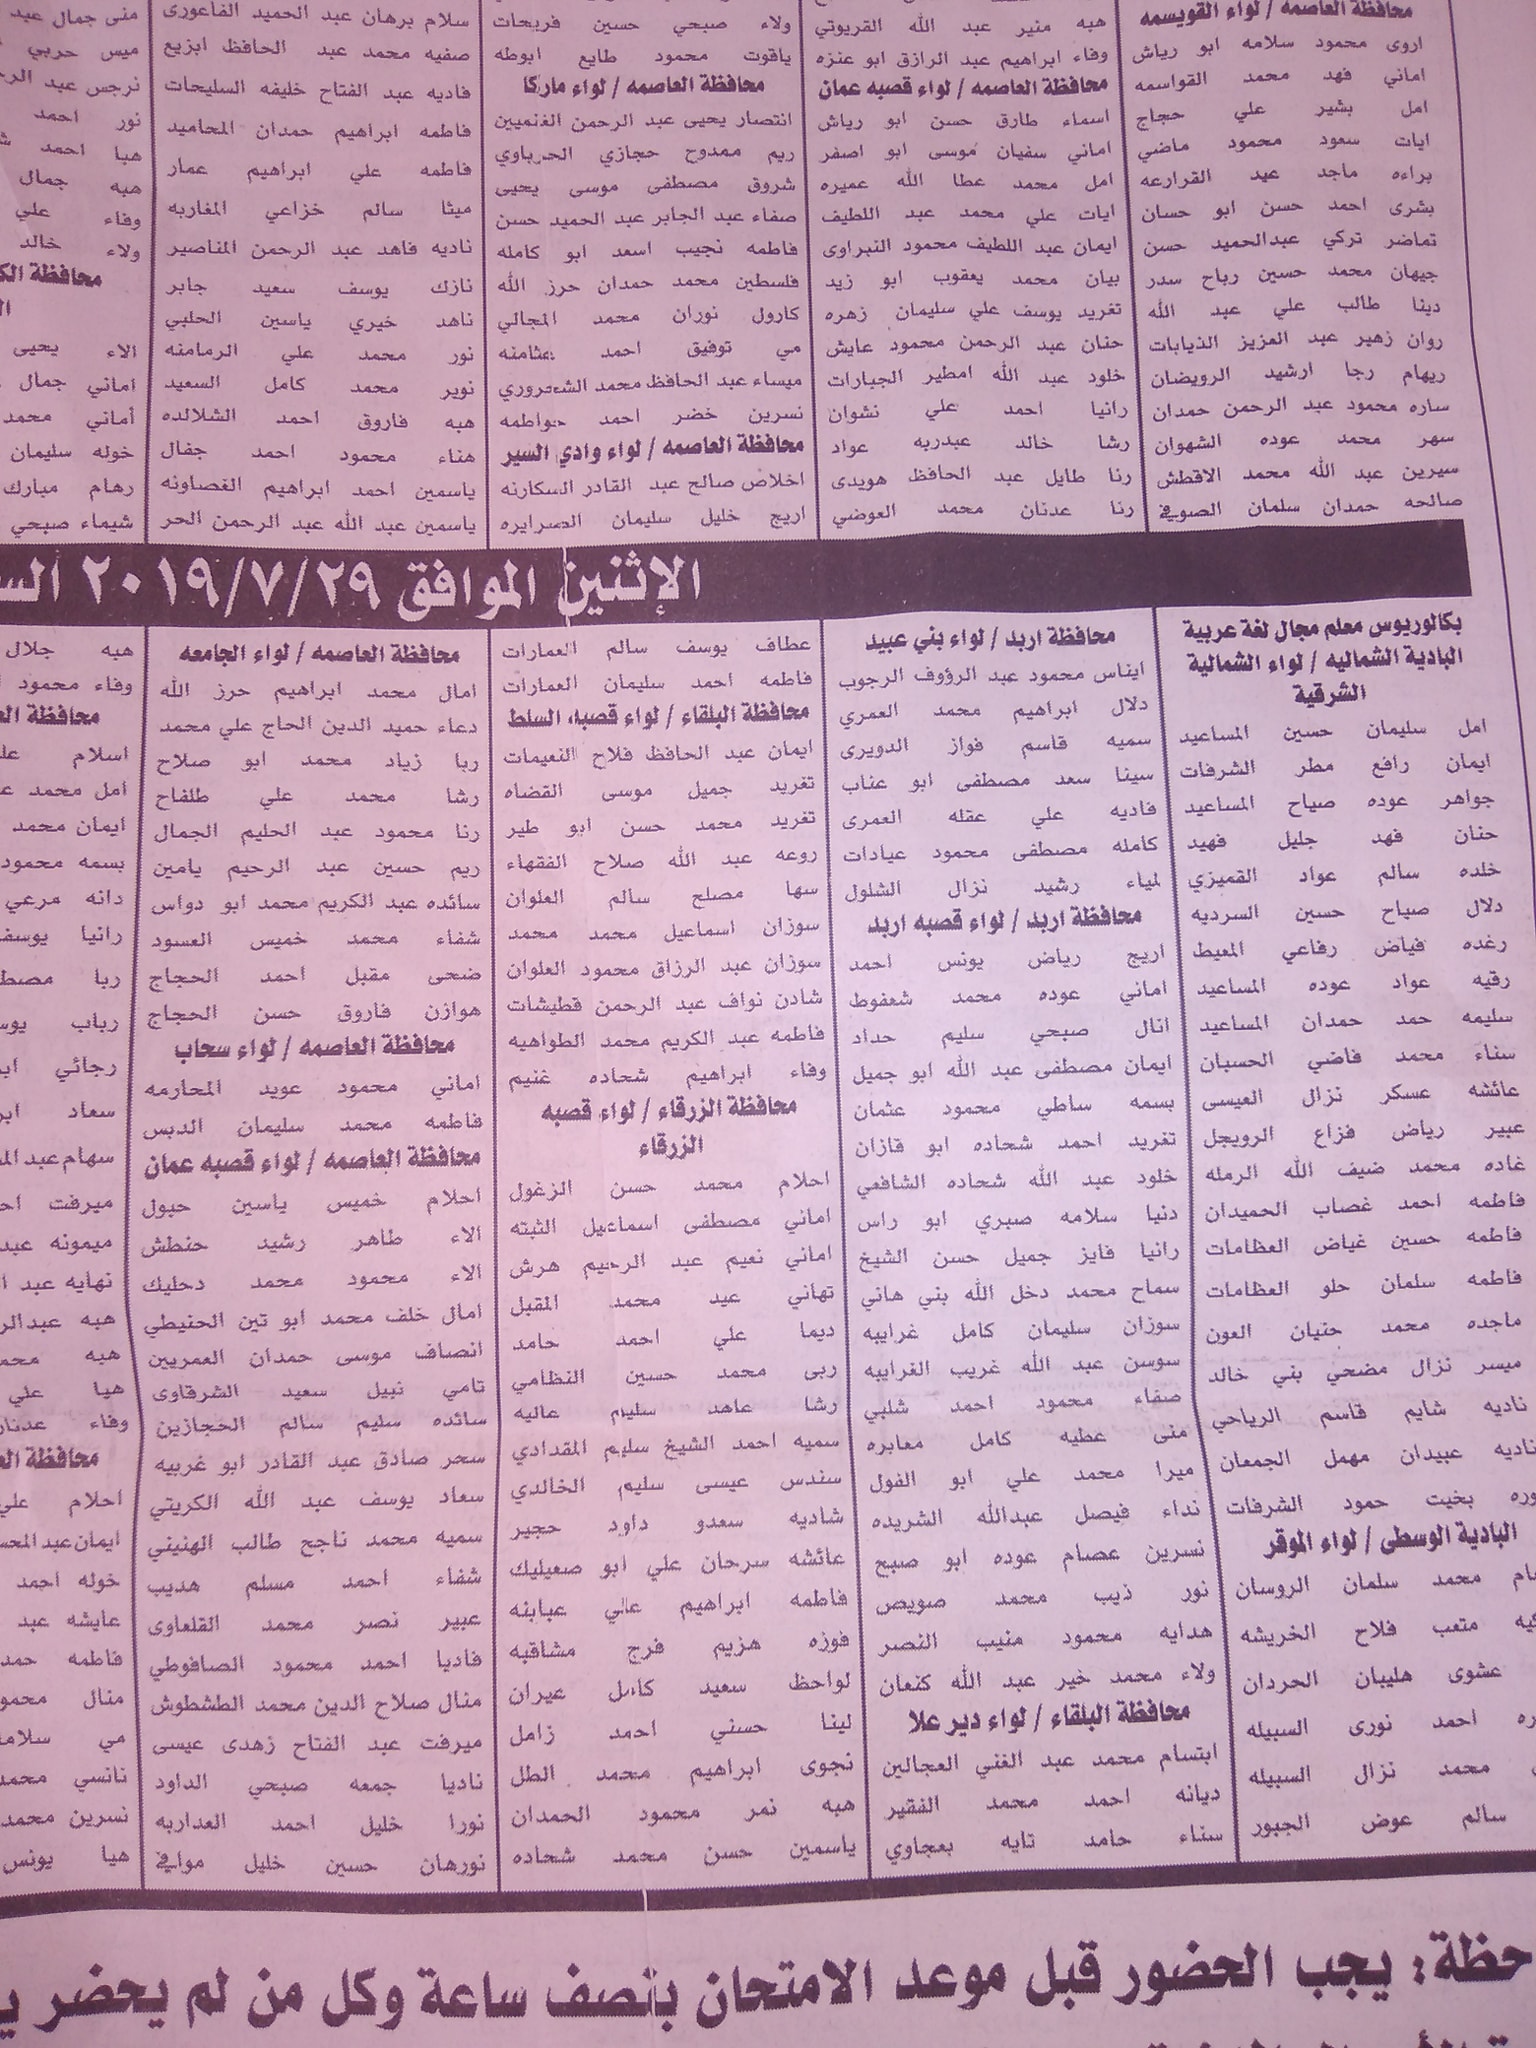 محافظة العاصمه / لواء القويسمه
اروى محمود سلامه ابو رياش
اماني فهد محمد القواسمه
امل بشير علي حجاج
ايات سعود محمود ماضي
براءه ماجد عيد القرارعه
بشرى احمد حسن ابو حسان
تماضر تركي عبدالحميد حسن
جيهان محمد حسين رباح سدر
دينا طالب علي عبد الله
روان زهير عبد العزيز الذيابات
ريهام رجا ارشيد الرويضان
ساره محمود عبد الرحمن حمدان
سهر محمد عوده الشهوان
سيرين عبد الله محمد الاقطش
صالحه حمدان سلمان الصوفي
هبه منير عبد الله القريوتي
وفاء ابراهيم عبد الرازق ابو عنزه
محافظة العاصمه / لواء قصبه عمان
اسماء طارق حسن ابو رياش
اماني سفيان موسى ابو اصفر
امل محمد عطا الله عميره
ايات علي محمد عبد اللطيف
ايمان عبد اللطيف محمود النبراوى
بيان محمد يعقوب ابو زيد
تغريد يوسف علي سليمان زهره
حنان عبد الرحمن محمود عايش
خلود عبد الله امطير الجبارات
رانيا احمد علي نشوان
رشا خالد عبدربه عواد
رنا طايل عبد الحافظ هويدى
رنا عدنان محمد العوضي
ولاء صبحي حسين فريحات
ياقوت محمود طايع ابوطه
محافظة العاصمه / لواء ماركا
انتصار يحيى عبد الرحمن الغنميين
ريم ممدوح حجازي الحرباوي
شروق مصطفى موسى يحيى
صفاء عبد الجابر عبد الحميد حسن
فاطمه نجيب اسعد ابو كامله
فلسطين محمد حمدان حرز الله
كارول نوران محمد المجالي
مي توفيق احمد عثامنه
ميساء عبد الحافظ محمد الشحروري
نسرين خضر احمد حواطمه
محافظة العاصمه / لواء وادي السير
اخلاص صالح عبد القادر السكارنه
اريج خليل سليمان الصرايره
سلام برهان عبد الحميد الفاعورى
صفيه محمد عبد الحافظ ابزيع
فاديه عبد الفتاح خليفه السليحات
فاطمه ابراهيم حمدان المحاميد
فاطمه علي ابراهيم عمار
ميثا سالم خزاعي المغاربه
ناديه فاهد عبد الرحمن المناصير
نازك يوسف سعيد جابر
ناهد خيري ياسين الحلبي
نور محمد علي الرمامنه
نوير محمد كامل السعيد
هبه فاروق احمد الشلالده
هناء محمود احمد جفال
ياسمين احمد ابراهيم الغصاونه
ياسمين عبد الله عبد الرحمن الحر
منى جمال عبد
ميس حربي
نرجس عبد
نور احمد
هبا احمد
هبه جمال
وفاء علي
ولاء خالد
محافظة
الاء يحيى
اماني جمال
أماني محمد
خوله سليمان
رهام مبارك
شيماء صبحي
الإثنين الموافق ٢٠١٩/٧/٢٩
بكالوريوس معلم مجال لغة عربية
البادية الشماليه / لواء الشمالية
الشرقية
امل سليمان حسين المساعيد
ايمان رافع مطر الشرفات
جواهر عوده صياح المساعيد
حنان فهد جليل فهيد
خلده سالم عواد القميزي
دلال صياح حسين السرديه
رغده فياض رفاعي المعيط
رقيه عواد عوده المساعيد
سليمه حمد حمدان المساعيد
سناء محمد فاضي الحسبان
عائشه عسكر نزال العيسى
عبير رياض فزاع الرويجل
غاده محمد ضيف الله الرمله
فاطمه احمد غصاب الحميدان
فاطمه حسين غياض العظامات
فاطمه سلمان حلو العظامات
ماجده محمد حتيان العون
ميسر نزال مضحي بني خالد
ناديه شايم قاسم الرياحي
ناديه عبيدان مهمل الجمعان
بخيت حمود الشرفات
البادية الوسطى / لواء الموقر
محمد سلمان الروسان
متعب فلاح الخريشه
عشوى هليبان الحردان
احمد نورى السبيله
محمد نزال السبيله
سالم عوض الجبور
محافظة اربد / لواء بني عبيد
ايناس محمود عبد الرؤوف الرجوب
دلال ابراهيم محمد العمري
سميه قاسم فواز الدويرى
سينا سعد مصطفى ابو عناب
فاديه علي عقله العمرى
كامله مصطفى محمود عيادات
لمياء رشيد نزال الشلول
محافظة اربد / لواء قصبه اربد
اريج رياض يونس احمد
اماني عوده محمد شعفوط
انال صبحي سليم حداد
ايمان مصطفى عبد الله ابو جميل
بسمه ساطي محمود عثمان
تغريد احمد شحاده ابو قازان
خلود عبد الله شحاده الشافعي
دنيا سلامه صبري ابو راس
رانيا فايز جميل حسن الشيخ
سماح محمد دخل الله بني هاني
سوزان سليمان كامل غرايبه
سوسن عبد الله غريب الغرايبه
صفاء محمود احمد شلبي
منى عطيه كامل معابره
ميرا محمد علي ابو الفول
نداء فيصل عبدالله الشريده
نسرين عصام عوده ابو صبح
نور ذيب محمد صويص
هدايه محمود منيب النصر
ولاء محمد خير عبد الله كنعان
محافظة البلقاء / لواء دير علا
ابتسام محمد عبد الغني العجالين
ديانه احمد محمد الفقير
سناء حامد تايه بعجاوي
عطاف يوسف سالم العمارات
فاطمه احمد سليمان العمارات
محافظة البلقاء / لواء قصبه السلط
ايمان عبد الحافظ فلاح النعيمات
تغريد جميل موسى القضاه
تغريد محمد حسن ابو طير
روعه عبد الله صلاح الفقهاء
سها مصلح سالم العلوان
سوزان اسماعيل محمد محمد
سوزان عبد الرزاق محمود العلوان
شادن نواف عبد الرحمن قطيشات
فاطمه عبد الكريم محمد الطواهيه
وفاء ابراهيم شحاده غنيم
محافظة الزرقاء / لواء قصبه
الزرقاء
احلام محمد حسن الزغول
اماني مصطفى اسماعيل الثبته
اماني نعيم عبد الرحيم هرش
تهاني عيد محمد المقبل
ديما علي احمد حامد
ربى محمد حسين النظامي
رشا عاهد سليم عاليه
سميه احمد الشيخ سليم المقدادي
سندس عيسى سليم الخالدي
شاديه سعدو داود حجير
عائشه سرحان علي ابو صعيليك
فاطمه ابراهيم علي عبابنه
فوزه هزيم فرج مشاقبه
لواحظ سعيد كامل عيران
لينا حسني احمد زامل
نجوى ابراهيم محمد الطل
هبه نمر محمود الحمدان
ياسمين حسن محمد شحاده
محافظة العاصمه / لواء الجامعه
امال محمد ابراهيم حرز الله
دعاء حميد الدين الحاج علي محمد
ربا زياد محمد ابو صلاح
رشا محمد علي طلفاح
رنا محمود عبد الحليم الجمال
ريم حسين عبد الرحيم يامين
سائده عبد الكريم محمد ابو دواس
شفاء محمد خميس العسود
ضحى مقبل احمد الحجاج
هوازن فاروق حسن الحجاج
محافظة العاصمه / لواء سحاب
اماني محمود عويد المحارمه
فاطمه محمد سليمان الدبس
محافظة العاصمه / لواء قصبه عمان
احلام خميس ياسين حبول
الاء طاهر رشيد حنطش
الاء محمود محمد دحليك
امال خلف محمد ابو تين الحنيطي
انصاف موسى حمدان العمريين
تامي نبيل سعيد الشرقاوى
سائده سليم سالم الحجازين
سحر صادق عبد القادر ابو غربيه
سعاد يوسف عبد الله الكريتي
سميه محمد ناجح طالب الهنيني
شفاء احمد مسلم هديب
عبير نصر محمد القلعاوى
فاديا احمد محمود الصافوطي
منال صلاح الدين محمد الطشطوش
ميرفت عبد الفتاح زهدى عيسى
ناديا جمعه صبحي الداود
نورا خليل احمد العداربه
نورهان حسين خليل موافي
هبه جلال
وفاء محمود
محافظة
اسلام
امل محمد
ايمان محمد
بسمه محمود
دانه مرعي
رانيا
ربا
رباب
رجائي
سعاد
سهام
ميرفت
ميمونه
نهايه عبد
هبه
هبه
هيا علي
وفاء
محافظة
احلام علي
ايمان
خوله احمد
عايشه عبد
فاطمه
منال
مي
نانسي محمد
نسرين محمد
هيا يونس
يجب الحضور قبل موعد الامتحان بنصف ساعة وكل من لم يحضر